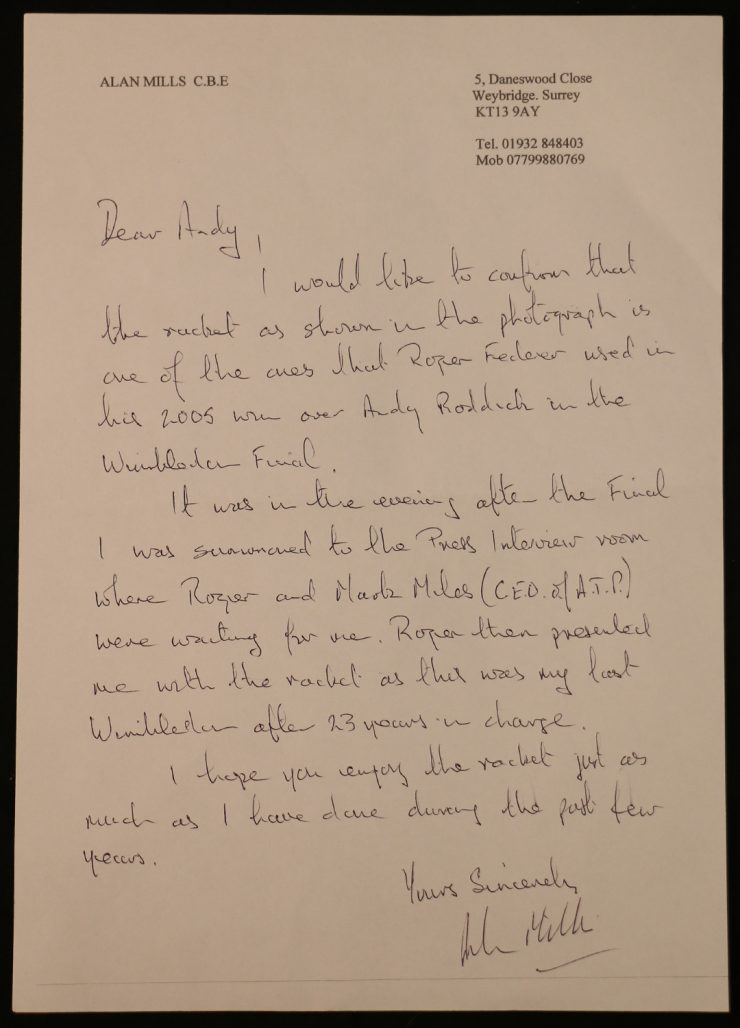 ALAN MILLS C.B.E
5, Daneswood Close
Weybridge. Surrey
KT13 9AY
Tel. 01932 848403
Mob 07799880769
Dear Andy,
I would like to confirm that
the racket as shown in the photograph is
one of the ones that Roger Federer used in
his 2005 win over Andy Roddick in the
Wimbledon Final.
It was in the evening after the Final
I was summoned to the Press Interview room
where Roger and Mark Miles (C.E.O. of A.T.P.)
were waiting for me. Roger then presented
me with the racket as this was my last
Wimbledon after 23 years in charge.
I hope you enjoy the racket just as
much as I have done during the past few
years.
Yours Sincerely,
Alan Mills